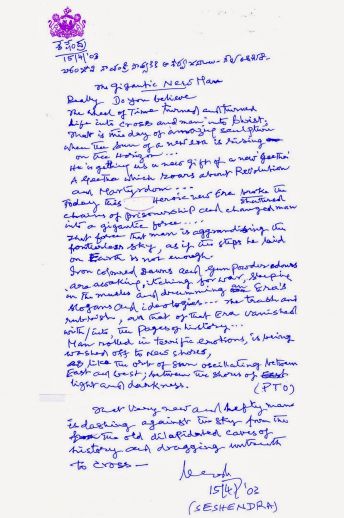 శేషేంద్ర
15/4/'02
The Gigantic New Man
Really Do you believe
The wheel of Time turned and turned
Life into cross and man into Christ;
That is the day of amazing sculption
when the Sun of a new era is rising
on the Horizon...
He's getting us a new gift of a new Geetha
A Geetha which roars about Revolution
and Martyrdom...
Today this Heroic new Era broke the
shattered
chains of prisonership and changed man
into a gigantic force....
That force that man is aggrandising the
frontierless sky, as if the steps he laid
on Earth is not enough.
Iron coloured Dawns and gun powder odours
are awaking, itching for war, sleeping
in the muscles and drumming in Era's
slogans and ideologies... The trash and
rubbish, all that of that Era vanished
with/into, the pages of history...
Man rolled in terrific erotions, is being
washed off to New shores,
like the orb of sun oscillating between
East and West; between the shores of East
light and darkness.
(PTO)
That very new and hefty man
is dashing against the sky from the
from the old dilapidated caves of
history and dragging untruth
to cross —
15/4/'02
(SESHENDRA)